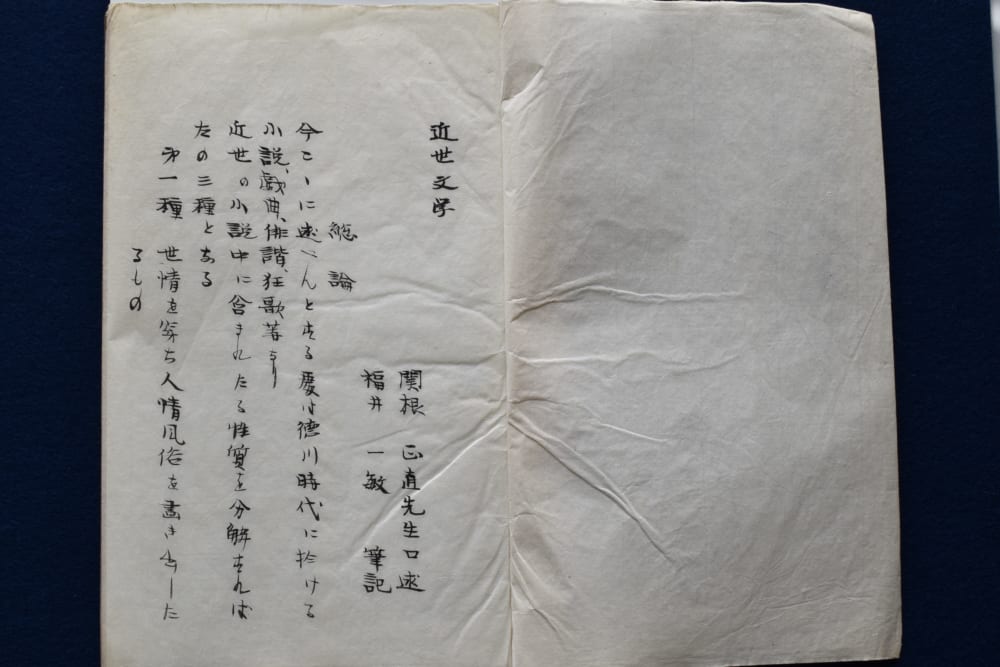 近世文学
関根 正直先生口述
福井 一敏 筆記
総論
今こゝに述べんとする處は徳川時代に於ける
小説、戯曲、俳諧、狂歌等なり
近世の小説中に含まれたる性質を分解すれば
左の三種とある
才一種 世情を穿ち人情風俗を畵き出した
るもの